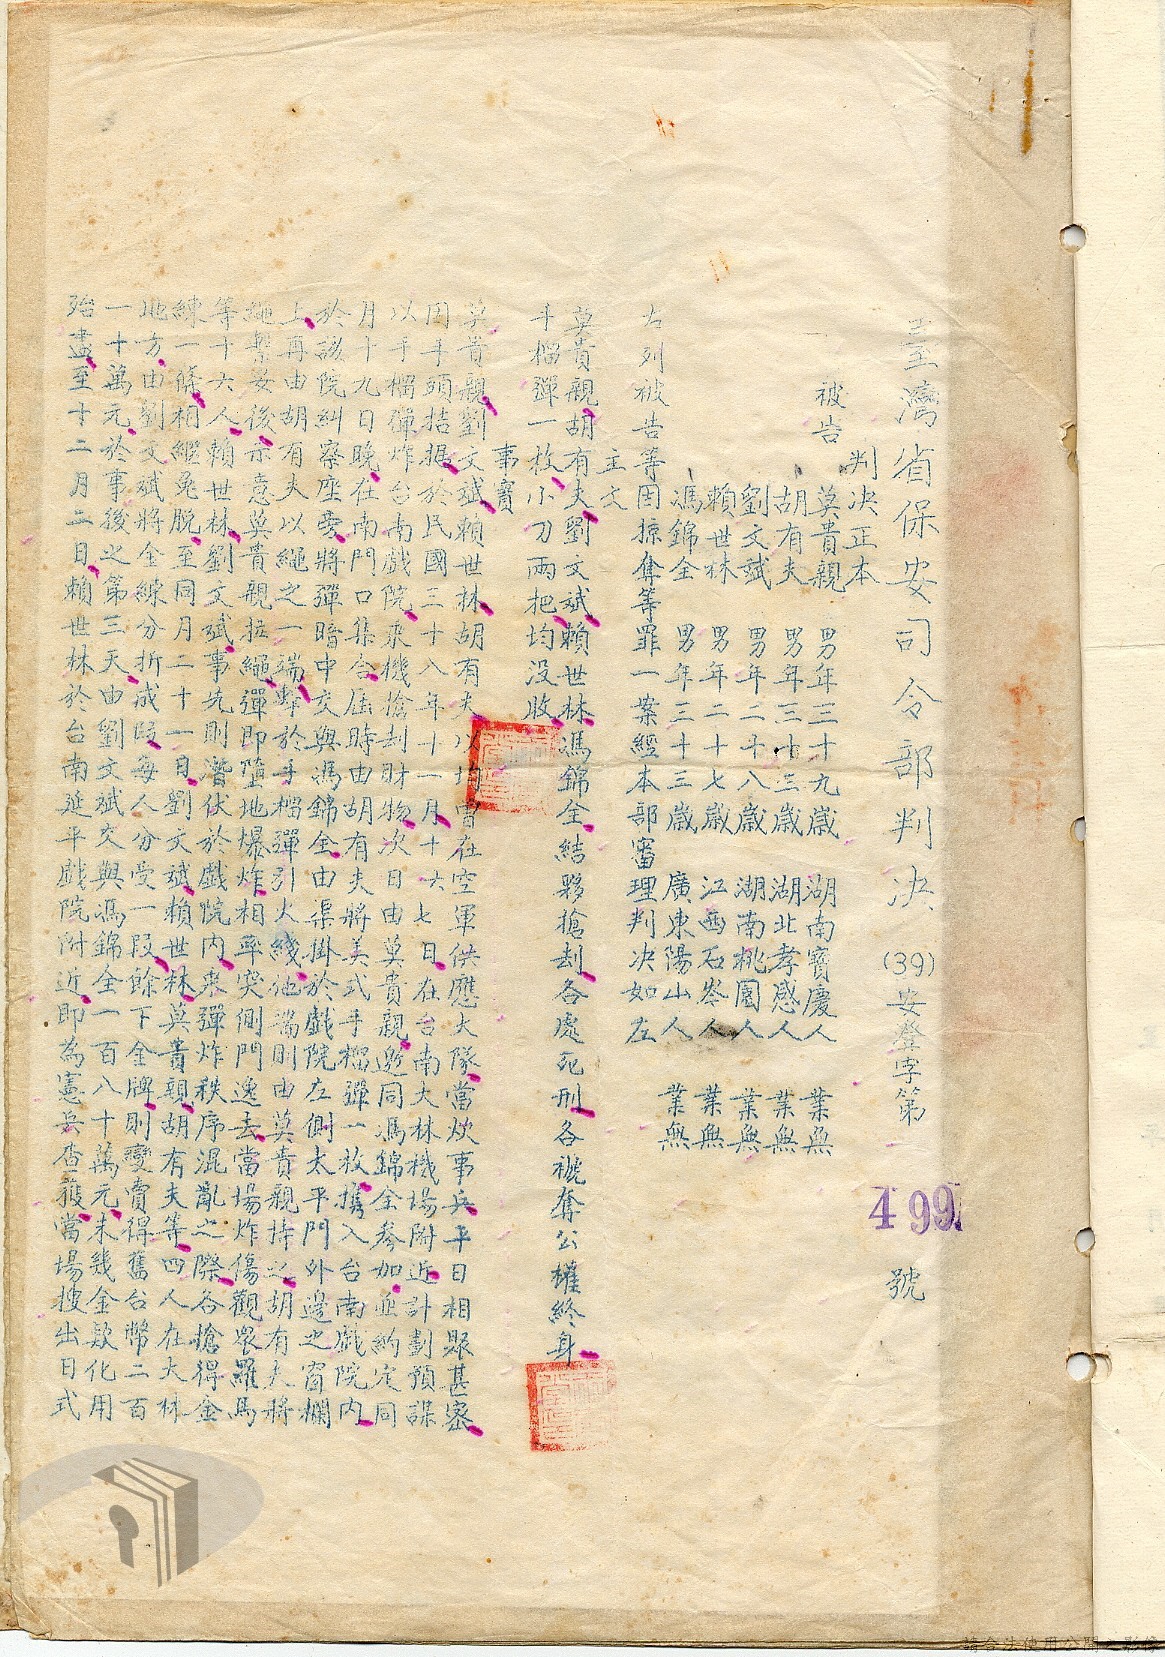 臺灣省保安司令部判决 (39)安澄字第 499 號
判决正本
被告 莫貴親 男年三十九歲 湖南寶慶人 業無
胡有夫 男年三十三歲 湖北孝感人 業無
劉文斌 男年二十八歲 湖南桃園人 業無
賴世林 男年二十七歲 江西石岑人 業無
馮錦全 男年三十三歲 廣東陽山人 業無
右列被告等因掠奪等罪一案經本部審理判决如左
主文
莫貴親胡有夫劉文斌賴世林馮錦全結夥搶刦各處死刑各褫奪公權終身
手榴彈一枚小刀兩把均没收
事實
莫貴親劉文斌賴世林胡有夫以均曾在空軍供應大隊當炊事兵平日相聚甚密
因手頭拮据於民國三十八年十一月十六七日在台南大林機場附近計劃預謀
以手榴彈炸台南戲院乘機搶刦財物次日由莫貴親邀同馮錦全参加並約定同
月十九日晚在南門口集合屆時由胡有夫將美式手榴彈一枚携入台南戲院内
於該院糾察座旁將彈暗中交與馮錦全由渠掛於戲院左側太平門外邊之窗欄
上再由胡有夫以繩之一端繫於手榴彈引火綫他端則由莫貴親持之胡有夫將
繩繫妥後示意莫貴親拉繩彈即墮地爆炸相率突側門逸去當場炸傷觀衆羅馬
等十六人賴世林劉文斌事先則潛伏於戲院内乘彈炸秩序混亂之際各搶得金
練一條相繼免脱至同月二十一日劉文斌賴世林莫貴親胡有夫等四人在大林
地方由劉文斌將金練分折成段每人分受一段餘下金牌則變賣得舊台幣二百
一十萬元於事後之第三天由劉文斌交與馮錦全一百八十萬元未幾金欵化用
殆盡至十二月二日賴世林於台南延平戲院附近即為憲兵查獲當場搜出日式
請合法使用公開之影像